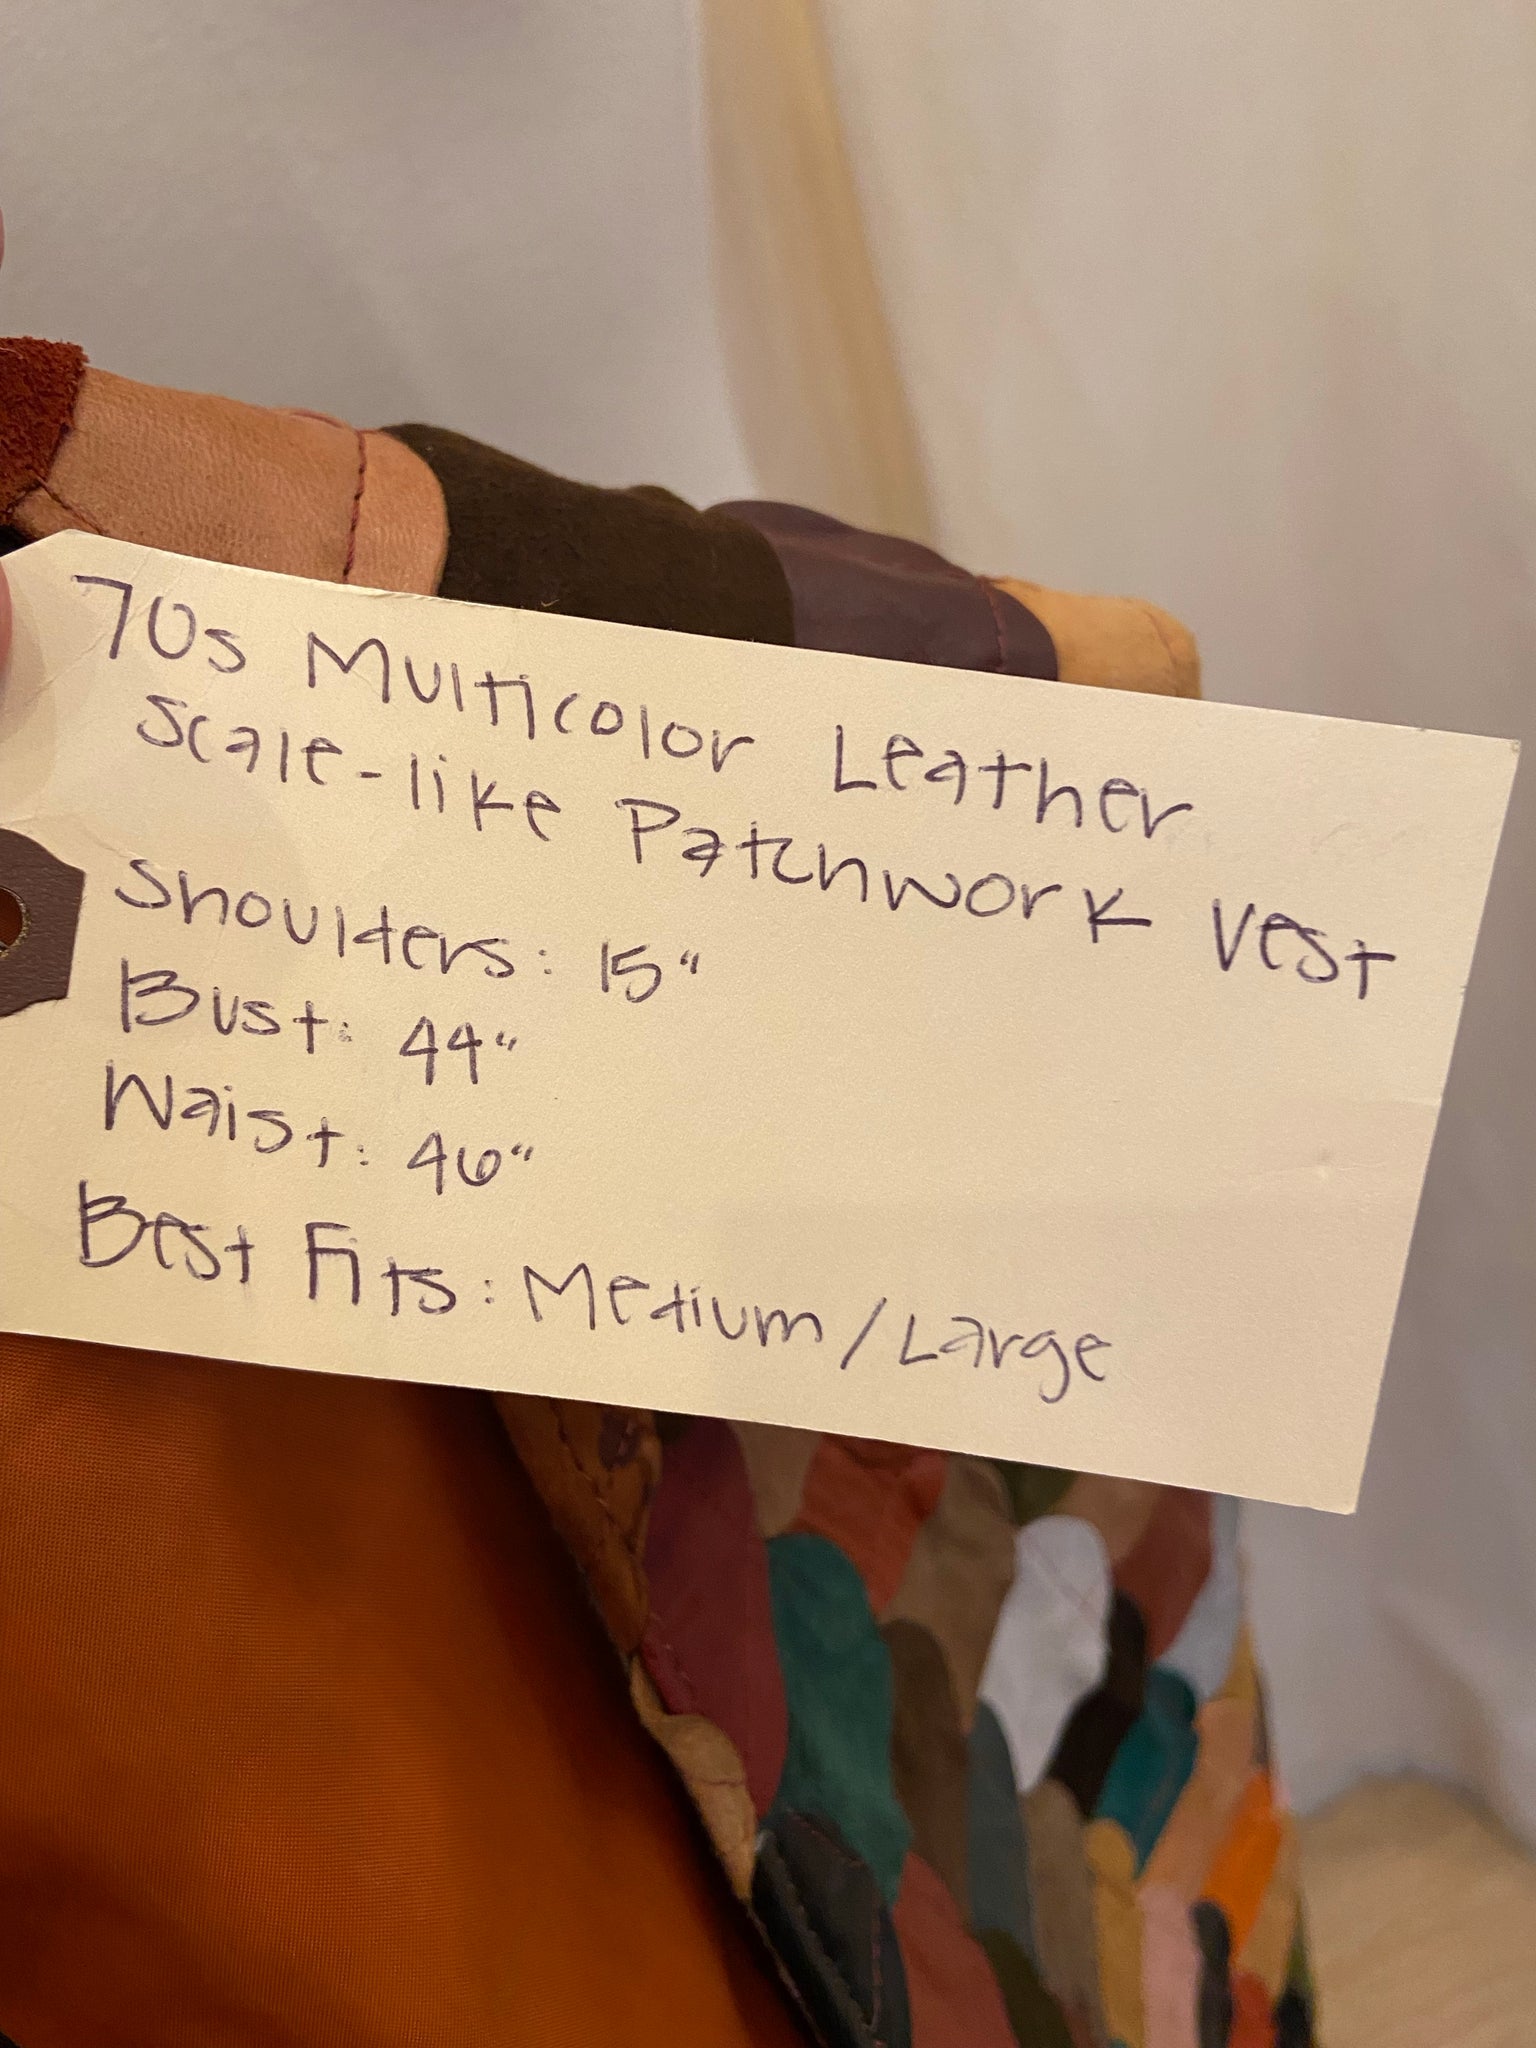 70s Multicolor Leather
Scale-like Patchwork Vest
Shoulders: 15"
Bust: 44"
Waist: 46"
Best Fits: Medium/Large